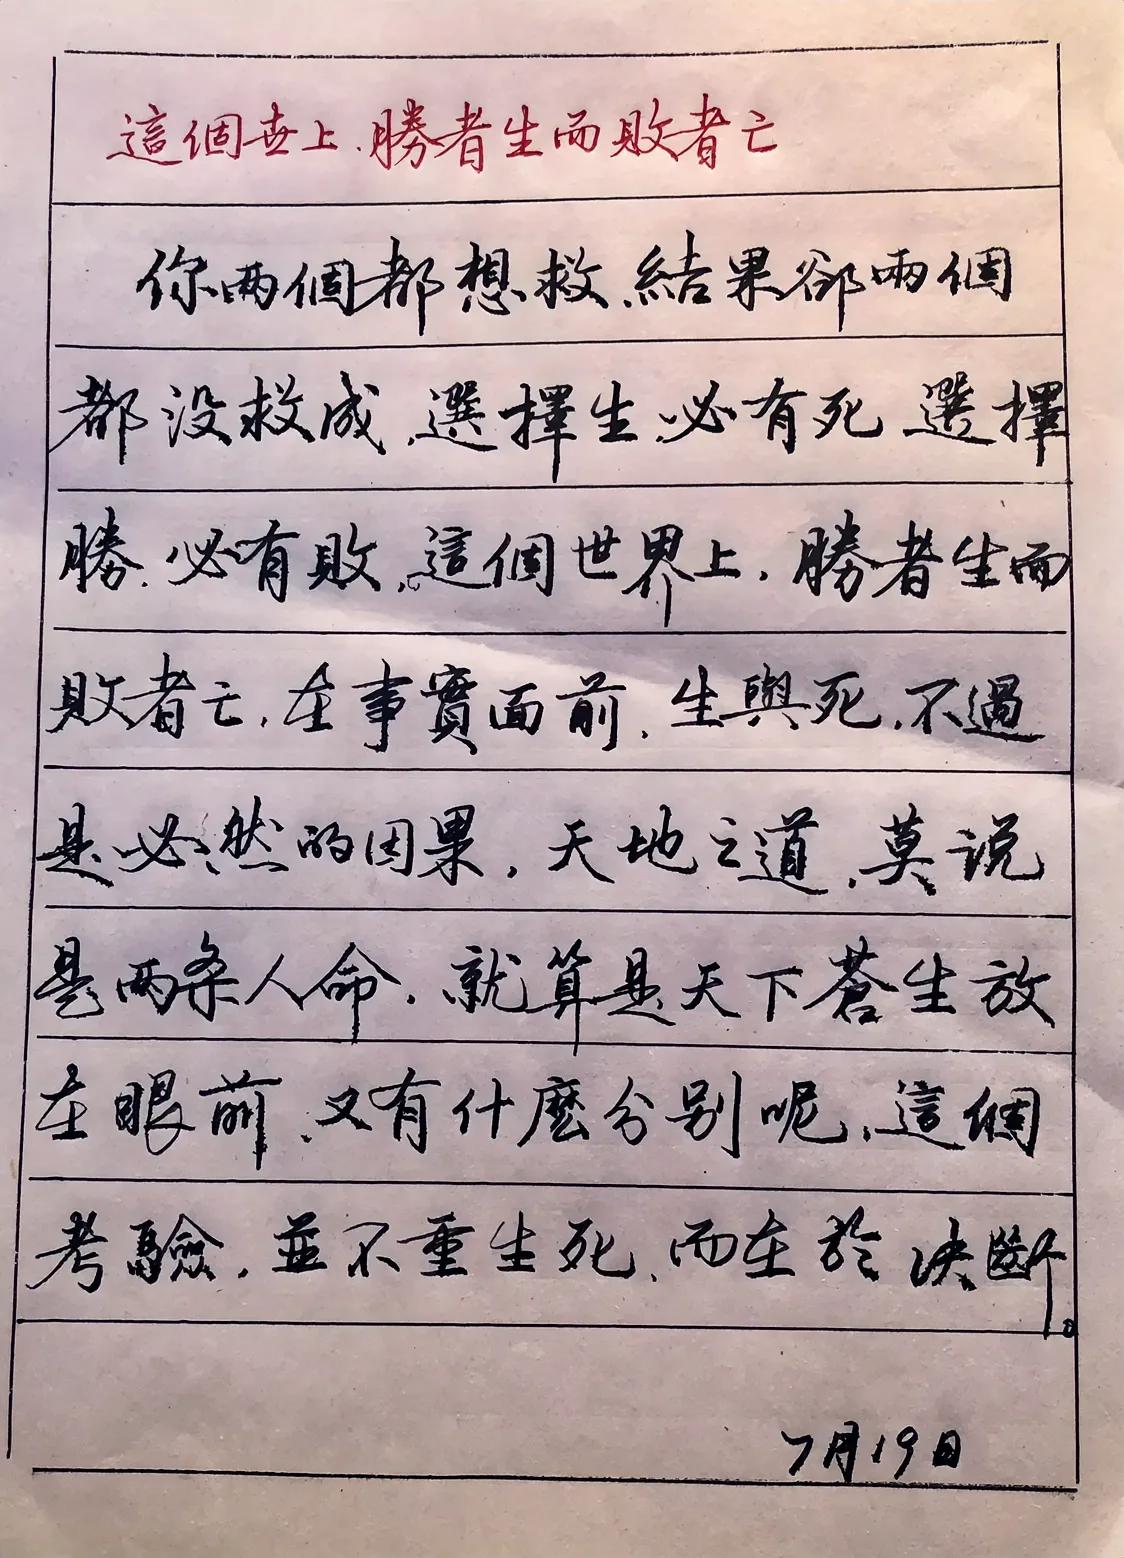 這個世上.勝者生而敗者亡
你两個都想救.結果卻兩個
都没救成.選擇生.必有死 選擇
勝.必有敗.這個世界上.勝者生而
敗者亡.在事實面前.生與死.不過
是必然的因果.天地之道.莫说
是两条人命.就算是天下蒼生放
在眼前.又有什麼分别呢.這個
考驗.並不重生死.而在於决斷。
7月19日